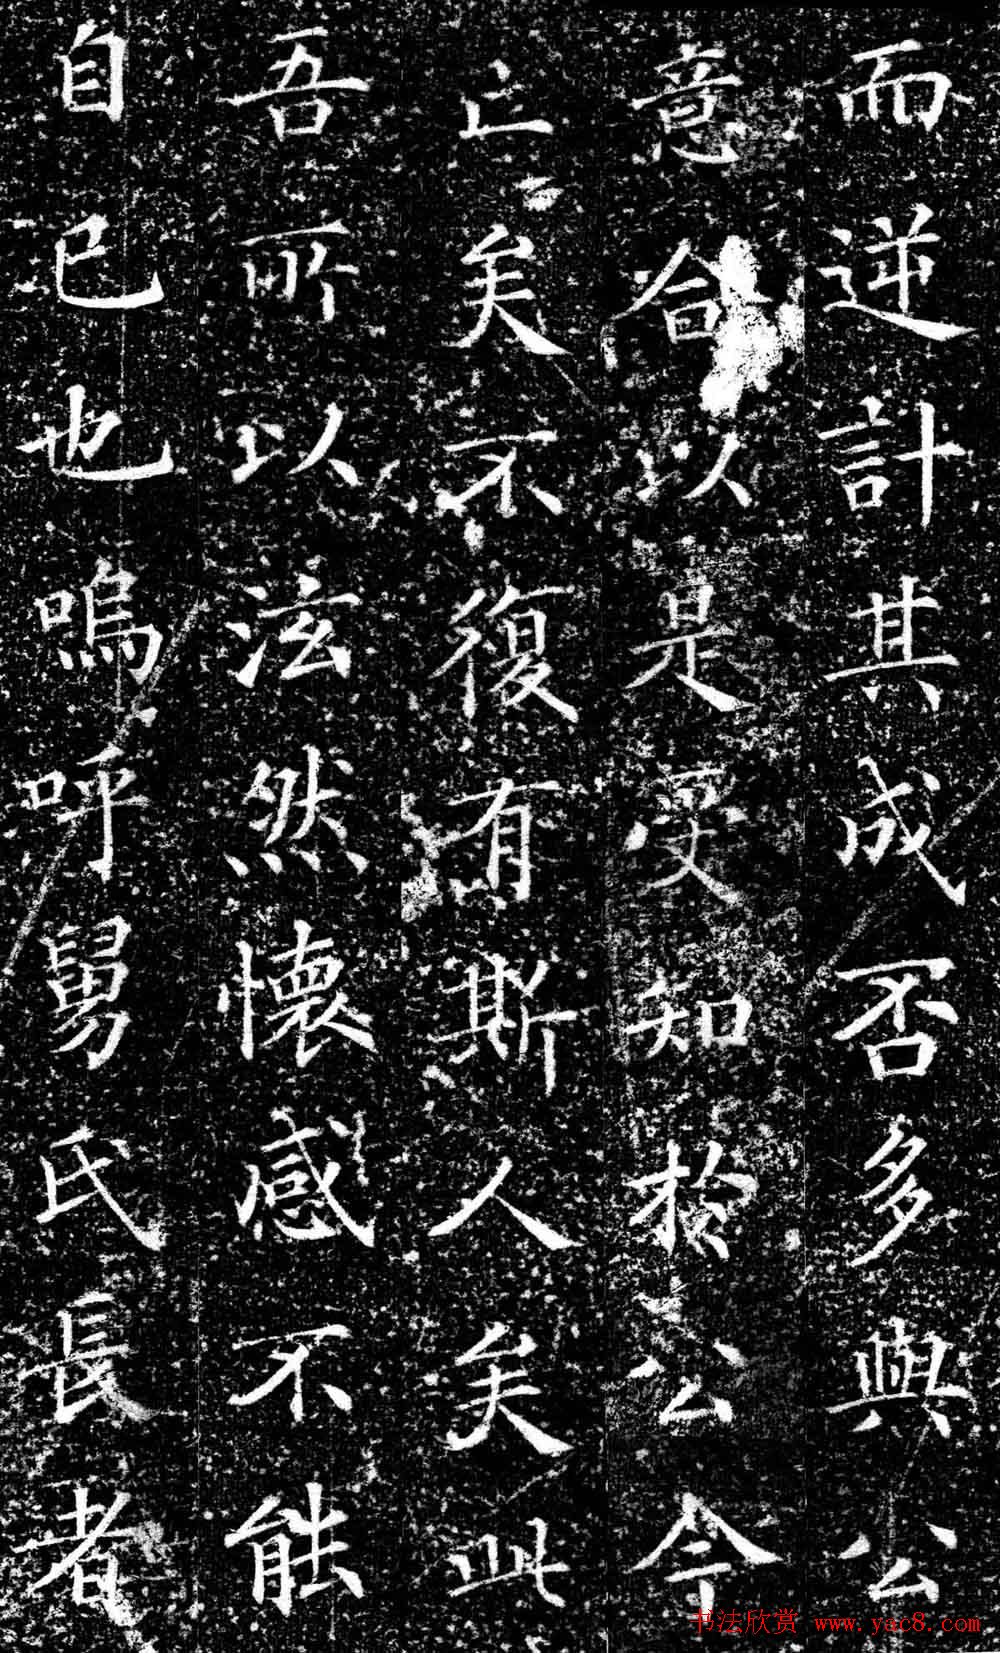 而逆計其成否多與公
意合以是受知於公今
亡矣不復有斯人矣此
吾所以泫然懷感不能
自已也嗚呼舅氏長者
书法欣赏 www.yac8.com